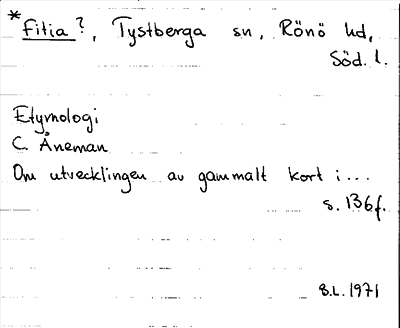 *Fitia?, Tystberga sn, Rönö hd,
Söd. l.
Etymologi
C. Åneman
Om utvecklingen av gammalt kort i...
s. 136f.
B.L. 1971